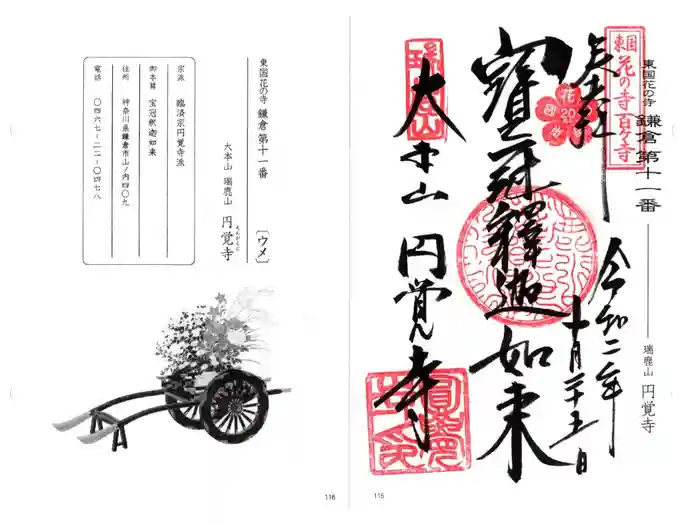 東国花の寺 鎌倉第十一番
瑞鹿山 円覚寺
東国
花の寺百ヶ寺
奉拝
令和二年
十月二十五日
花
20
寶冠釋迦如来
大本山 円覚寺
115
東国花の寺 鎌倉第十一番
〔ウメ〕
大本山 瑞鹿山 円覚寺
えんがくじ
宗派 臨済宗円覚寺派
御本尊 宝冠釈迦如来
住所 神奈川県鎌倉市山ノ内四〇九
電話 〇四六七-二二-〇四七八
116